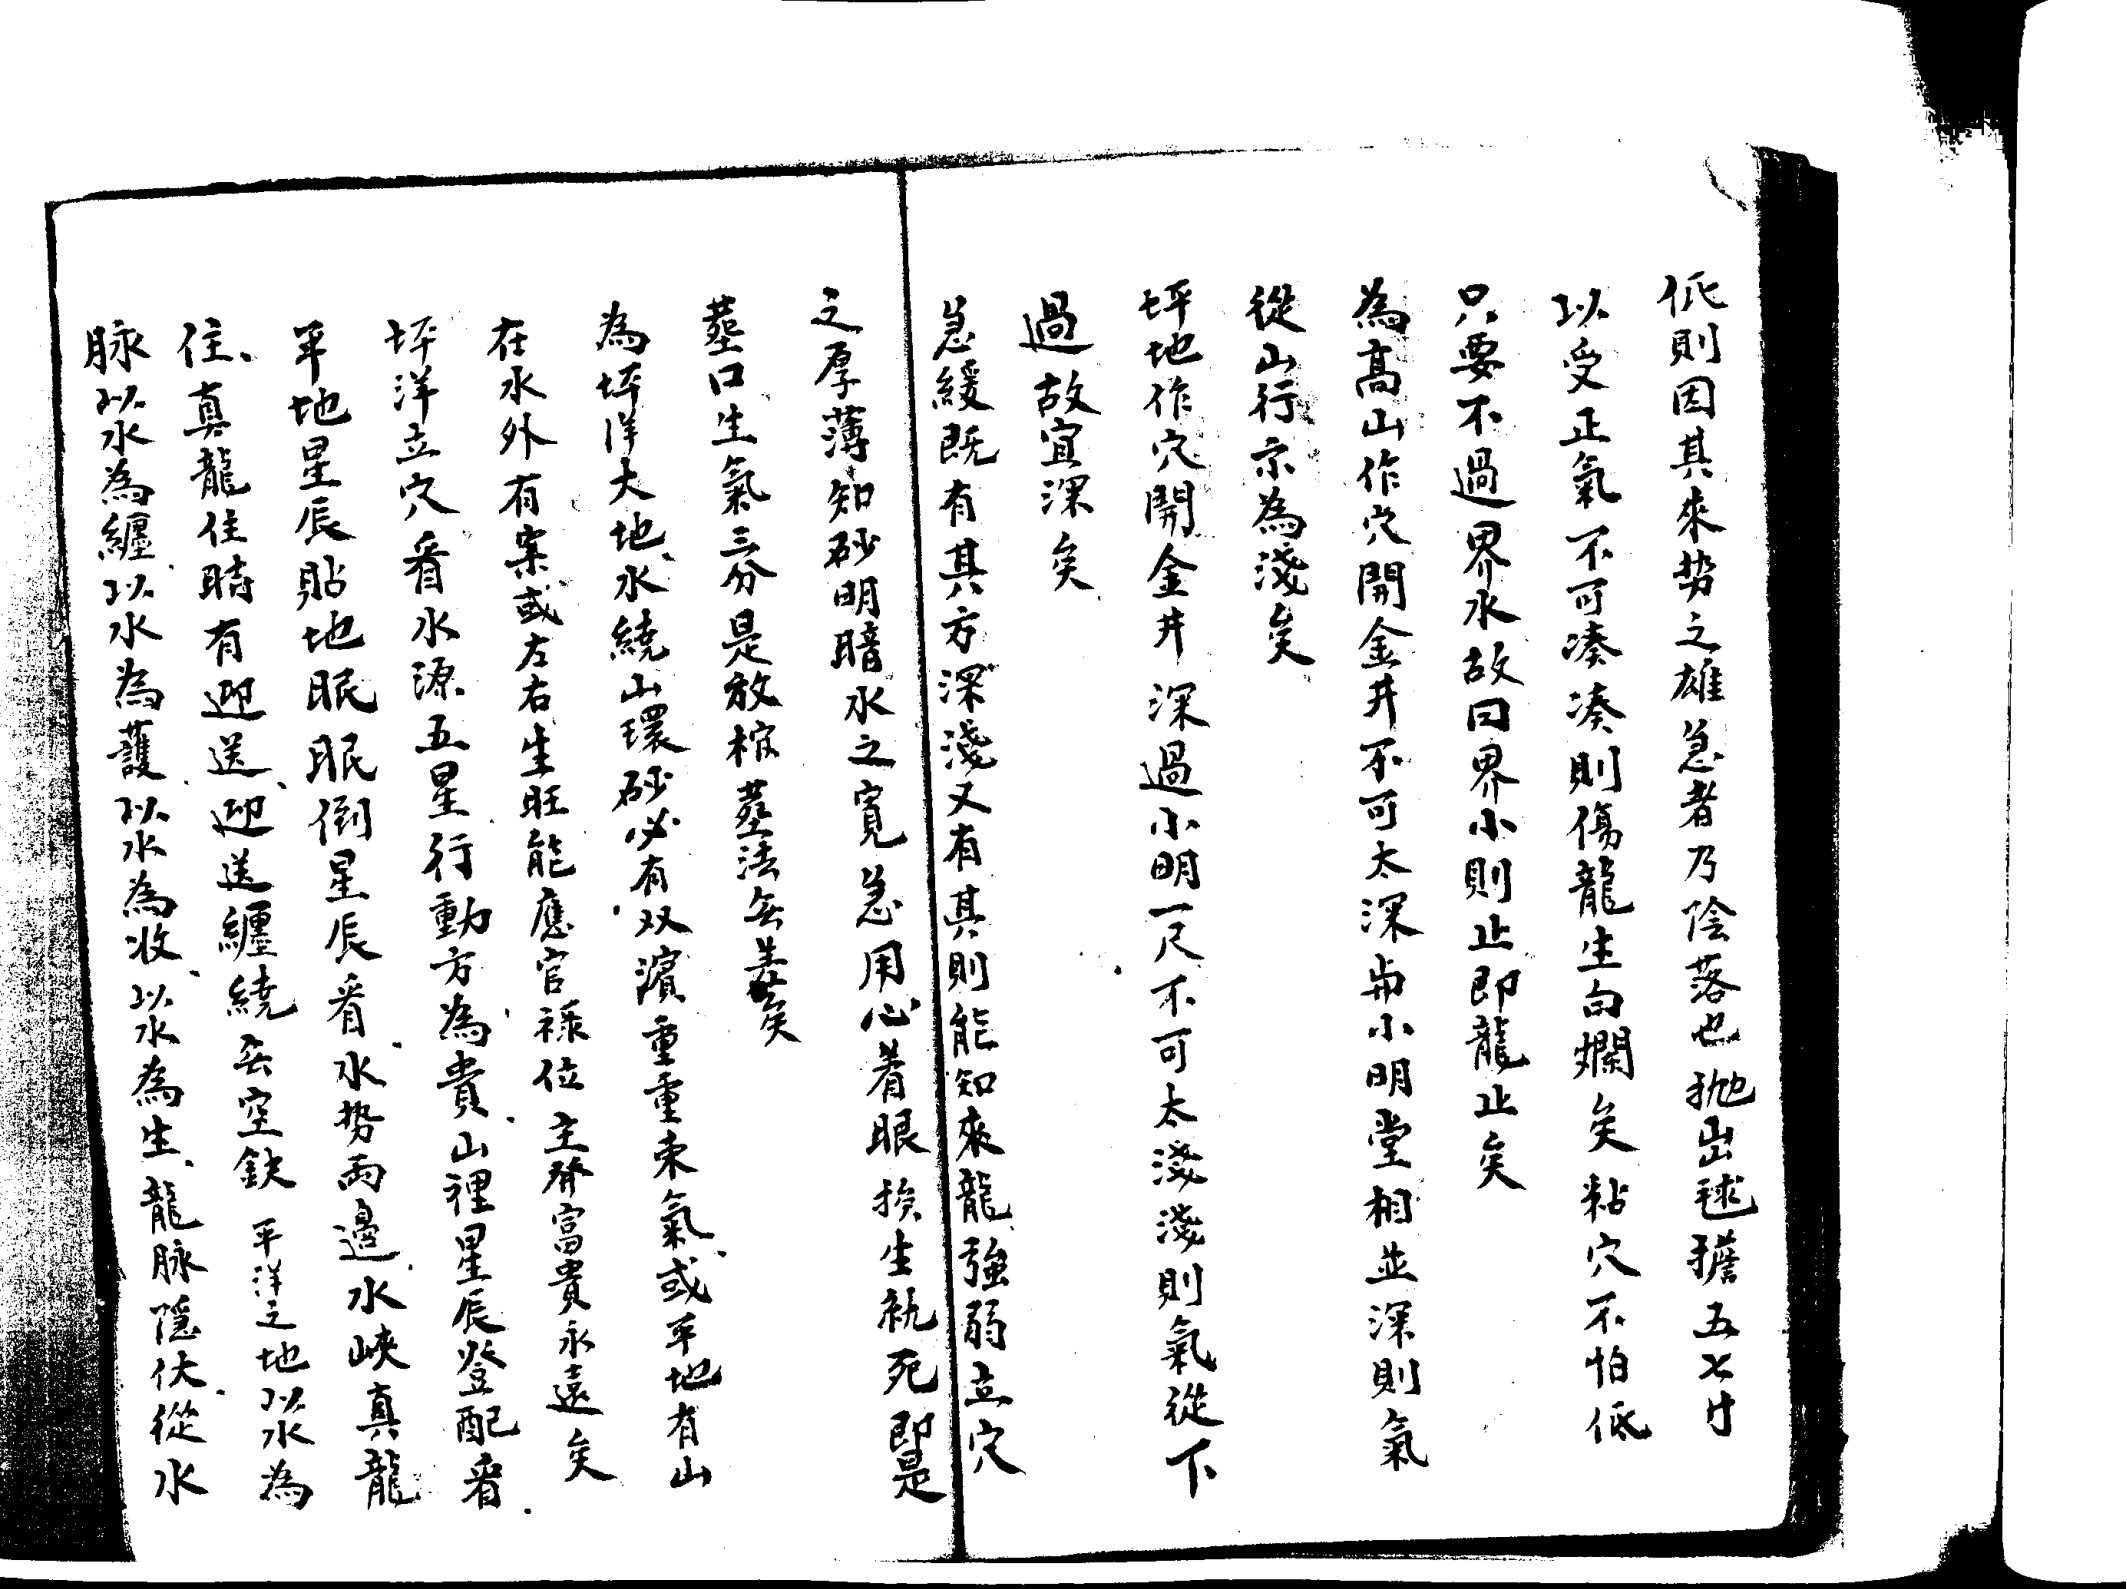 低則因其來势之雄急者乃陰落也抛出毬擔五七寸
以受正氣不可凑凑則傷龍生白爛矣粘穴不怕低
只要不過界水故曰界小則止即龍止矣
為高山作穴開金井不可太深与小明堂相並深則氣
從山行示為淺矣
坪地作穴開金井深過小明一尺不可太淺淺則氣從下
過故宜深矣
急緩既有其方深淺又有其則能知來龍強弱立穴
之厚薄知砂明暗水之寬急用心着眼挨生就死即是
塟口生氣三分是放棺塟法無差矣
為坪洋大地水繞山環砂必有双濵重重束氣或平地有山
在水外有案或左右生旺能應官祿位主發富貴永遠矣
坪洋立穴看水源五星行動方為貴山裡星辰登配看
平地星辰貼地眠眠倒星辰看水势両邊水峽真龍
住真龍住時有迎送迎送纏繞無空缺平洋之地以水為
脉以水為纏以水為護以水為收以水為生龍脉隱伏從水